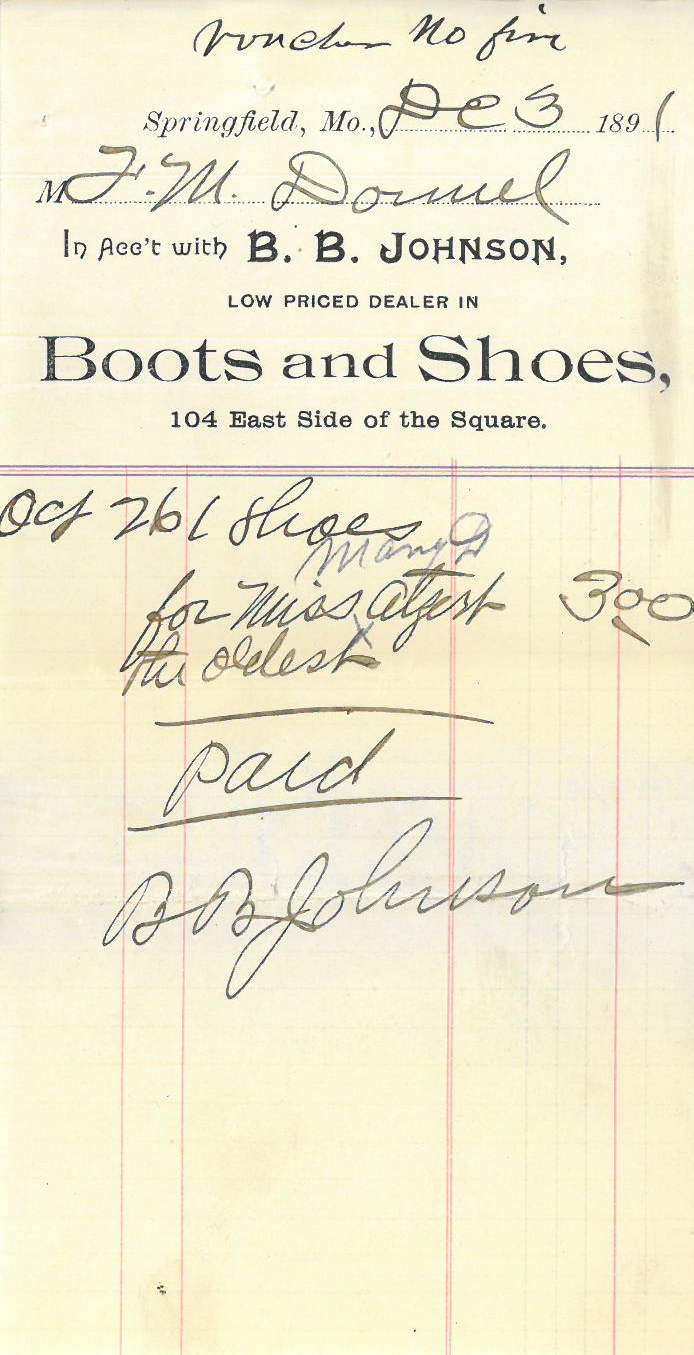 Voucher No five
Springfield, Mo., De 3 1891
M F. M. Donnel
In Acc't with B. B. JOHNSON,
LOW PRICED DEALER IN
Boots and Shoes,
104 East Side of the Square.
Oct 26 1 Shoes
Mary D
for Miss x 3 00
the oldest
paid
B B Johnson